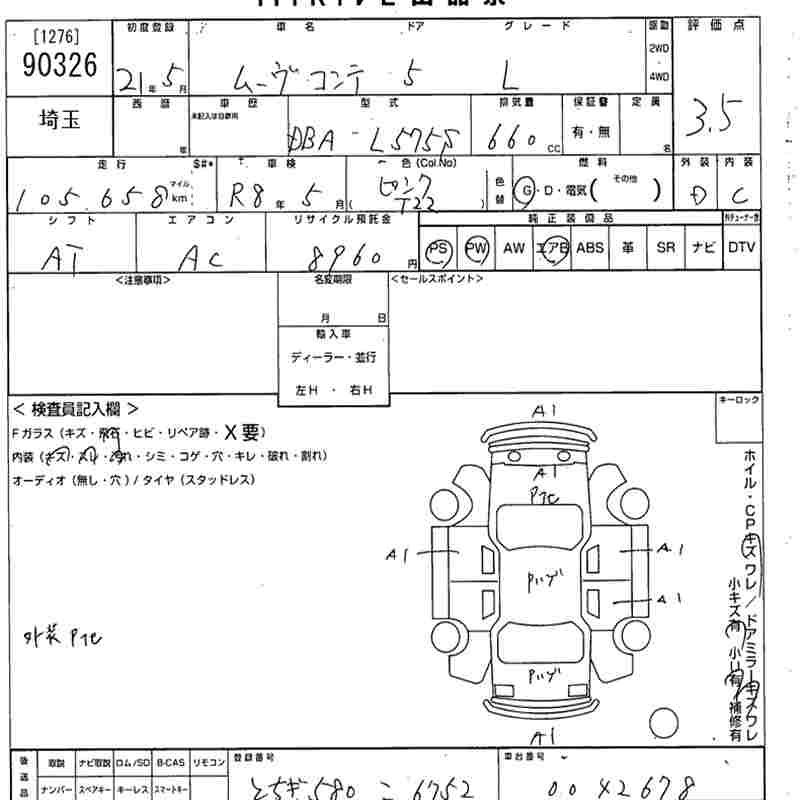 [1276]
90326
初度登録 車名 ドア グレード 駆動 評価点
21年5月 ムーヴコンテ 5 L 2WD・4WD 3.5
埼玉
西暦 車歴 型式 排気量 保証書 定員
年 未記入は自家用 DBA-L575S 660cc 有・無 名
走行 $#* 車検 色(Col.No) 燃料 外装 内装
105,658 マイル km R8年5月 (ピンク T22) 色替 G・D・電気( その他 ) D C
シフト エアコン リサイクル預託金 純正装備品
AT AC 8960円 PS PW AW エアB ABS 革 SR ナビ DTV
<注意事項> 名変期限 <セールスポイント>
月 日
輸入車
ディーラー・並行
左H ・ 右H
< 検査員記入欄 > キーロック
Fガラス(キズ・飛石・ヒビ・リペア跡・X要)
内装(キズ・スレ・汚れ・シミ・コゲ・穴・キレ・破れ・割れ)
オーディオ(無し・穴)/タイヤ(スタッドレス)
A1
A1
Pてヒ
A1 A1
Pハゲ
A1
外装Pてヒ
Pハゲ
A1
ホイル・CPキズワレ/ドアミラーキズワレ
小キズ有 小凹有 補修有
後送品 取説 ナビ取説 ロム/SD B-CAS リモコン 登録番号 車台番号
ナンバー スペアキー キーレス スマートキー とちぎ580 こ 6752 0042678